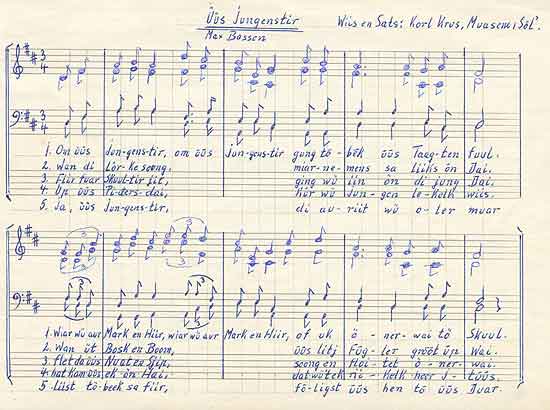 Üüs Jungenstir
Wiis en Sats: Korl Krus, Muasem, Söl'.
Max Bossen
1. Om üüs Jun-gens-tir, om üüs Jun-gens-tir gung tö-bek üüs Taag-ten fuul.
2. Wan di Lör-ke soong, mur-ne-mens sa liiks ön Dai.
3. Fiir fuar Skuul-tir jit, ging wü iin ön di jung Dai.
4. Üp üüs Pi-ders-dai, hür wü Jun-gen le-kelk wiis.
5. Ja, üüs Jun-gens-tir, di au-riit wü o-ler muar
1. Wiar wü aur Mark en Hiir, wiar wü aur Mark en Hiir, of uk ö-ner-wai tö Skuul.
2. Wan üt Bosk en Boom, üüs litj Füg-ler grööt üp Wai.
3. Flet da üüs Nuat en Sjip, soong en Röi-tet ö-ner-wai.
4. hat kam üüs ek ön Hai. dat wü tek ni-kelk heer J-tüüs.
5. Liist tö-beek sa fiir, fö-ligst üüs hen tö üüs Duar.